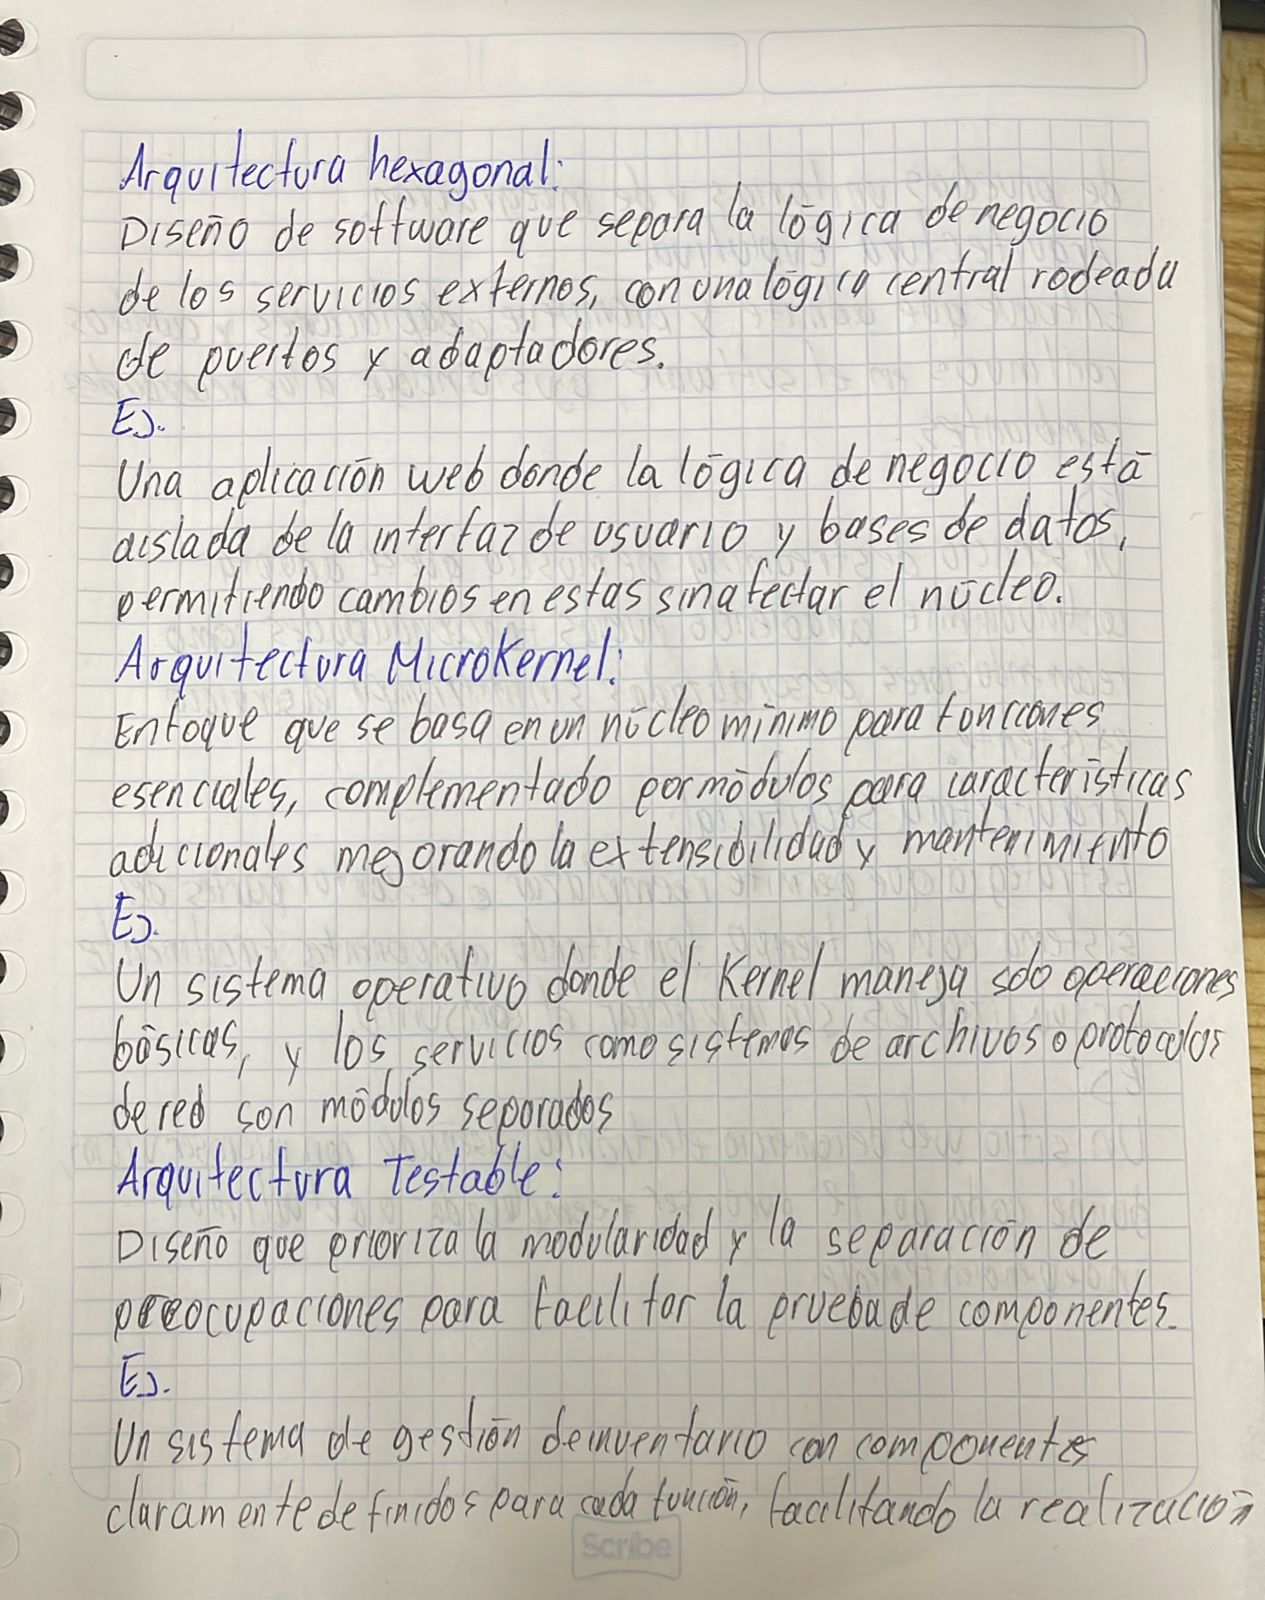 Arquitectura hexagonal:
Diseño de software que separa la lógica de negocio
de los servicios externos, con una lógica central rodeada
de puertos y adaptadores.
Ej.
Una aplicación web donde la lógica de negocio está
aislada de la interfaz de usuario y bases de datos,
permitiendo cambios en estas sin afectar el núcleo.
Arquitectura Microkernel:
Enfoque que se basa en un núcleo mínimo para funciones
esenciales, complementado por módulos para características
adicionales mejorando la extensibilidad y mantenimiento
Ej.
Un sistema operativo donde el Kernel maneja solo operaciones
básicas, y los servicios como sistemas de archivos o protocolos
de red son módulos separados
Arquitectura Testable:
Diseño que prioriza la modularidad y la separación de
preocupaciones para facilitar la prueba de componentes.
Ej.
Un sistema de gestión de inventario con componentes
claramente definidos para cada función, facilitando la realización
Scribe